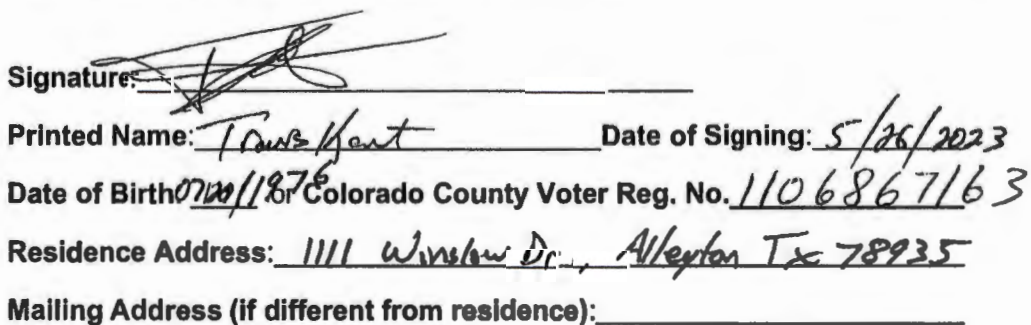 Signature:
Printed Name: Travis Kent Date of Signing: 5/26/2023
Date of Birth 07/20/1976 or Colorado County Voter Reg. No. 1106867163
Residence Address: 1111 Winslow Dr., Alleyton Tx 78935
Mailing Address (if different from residence):